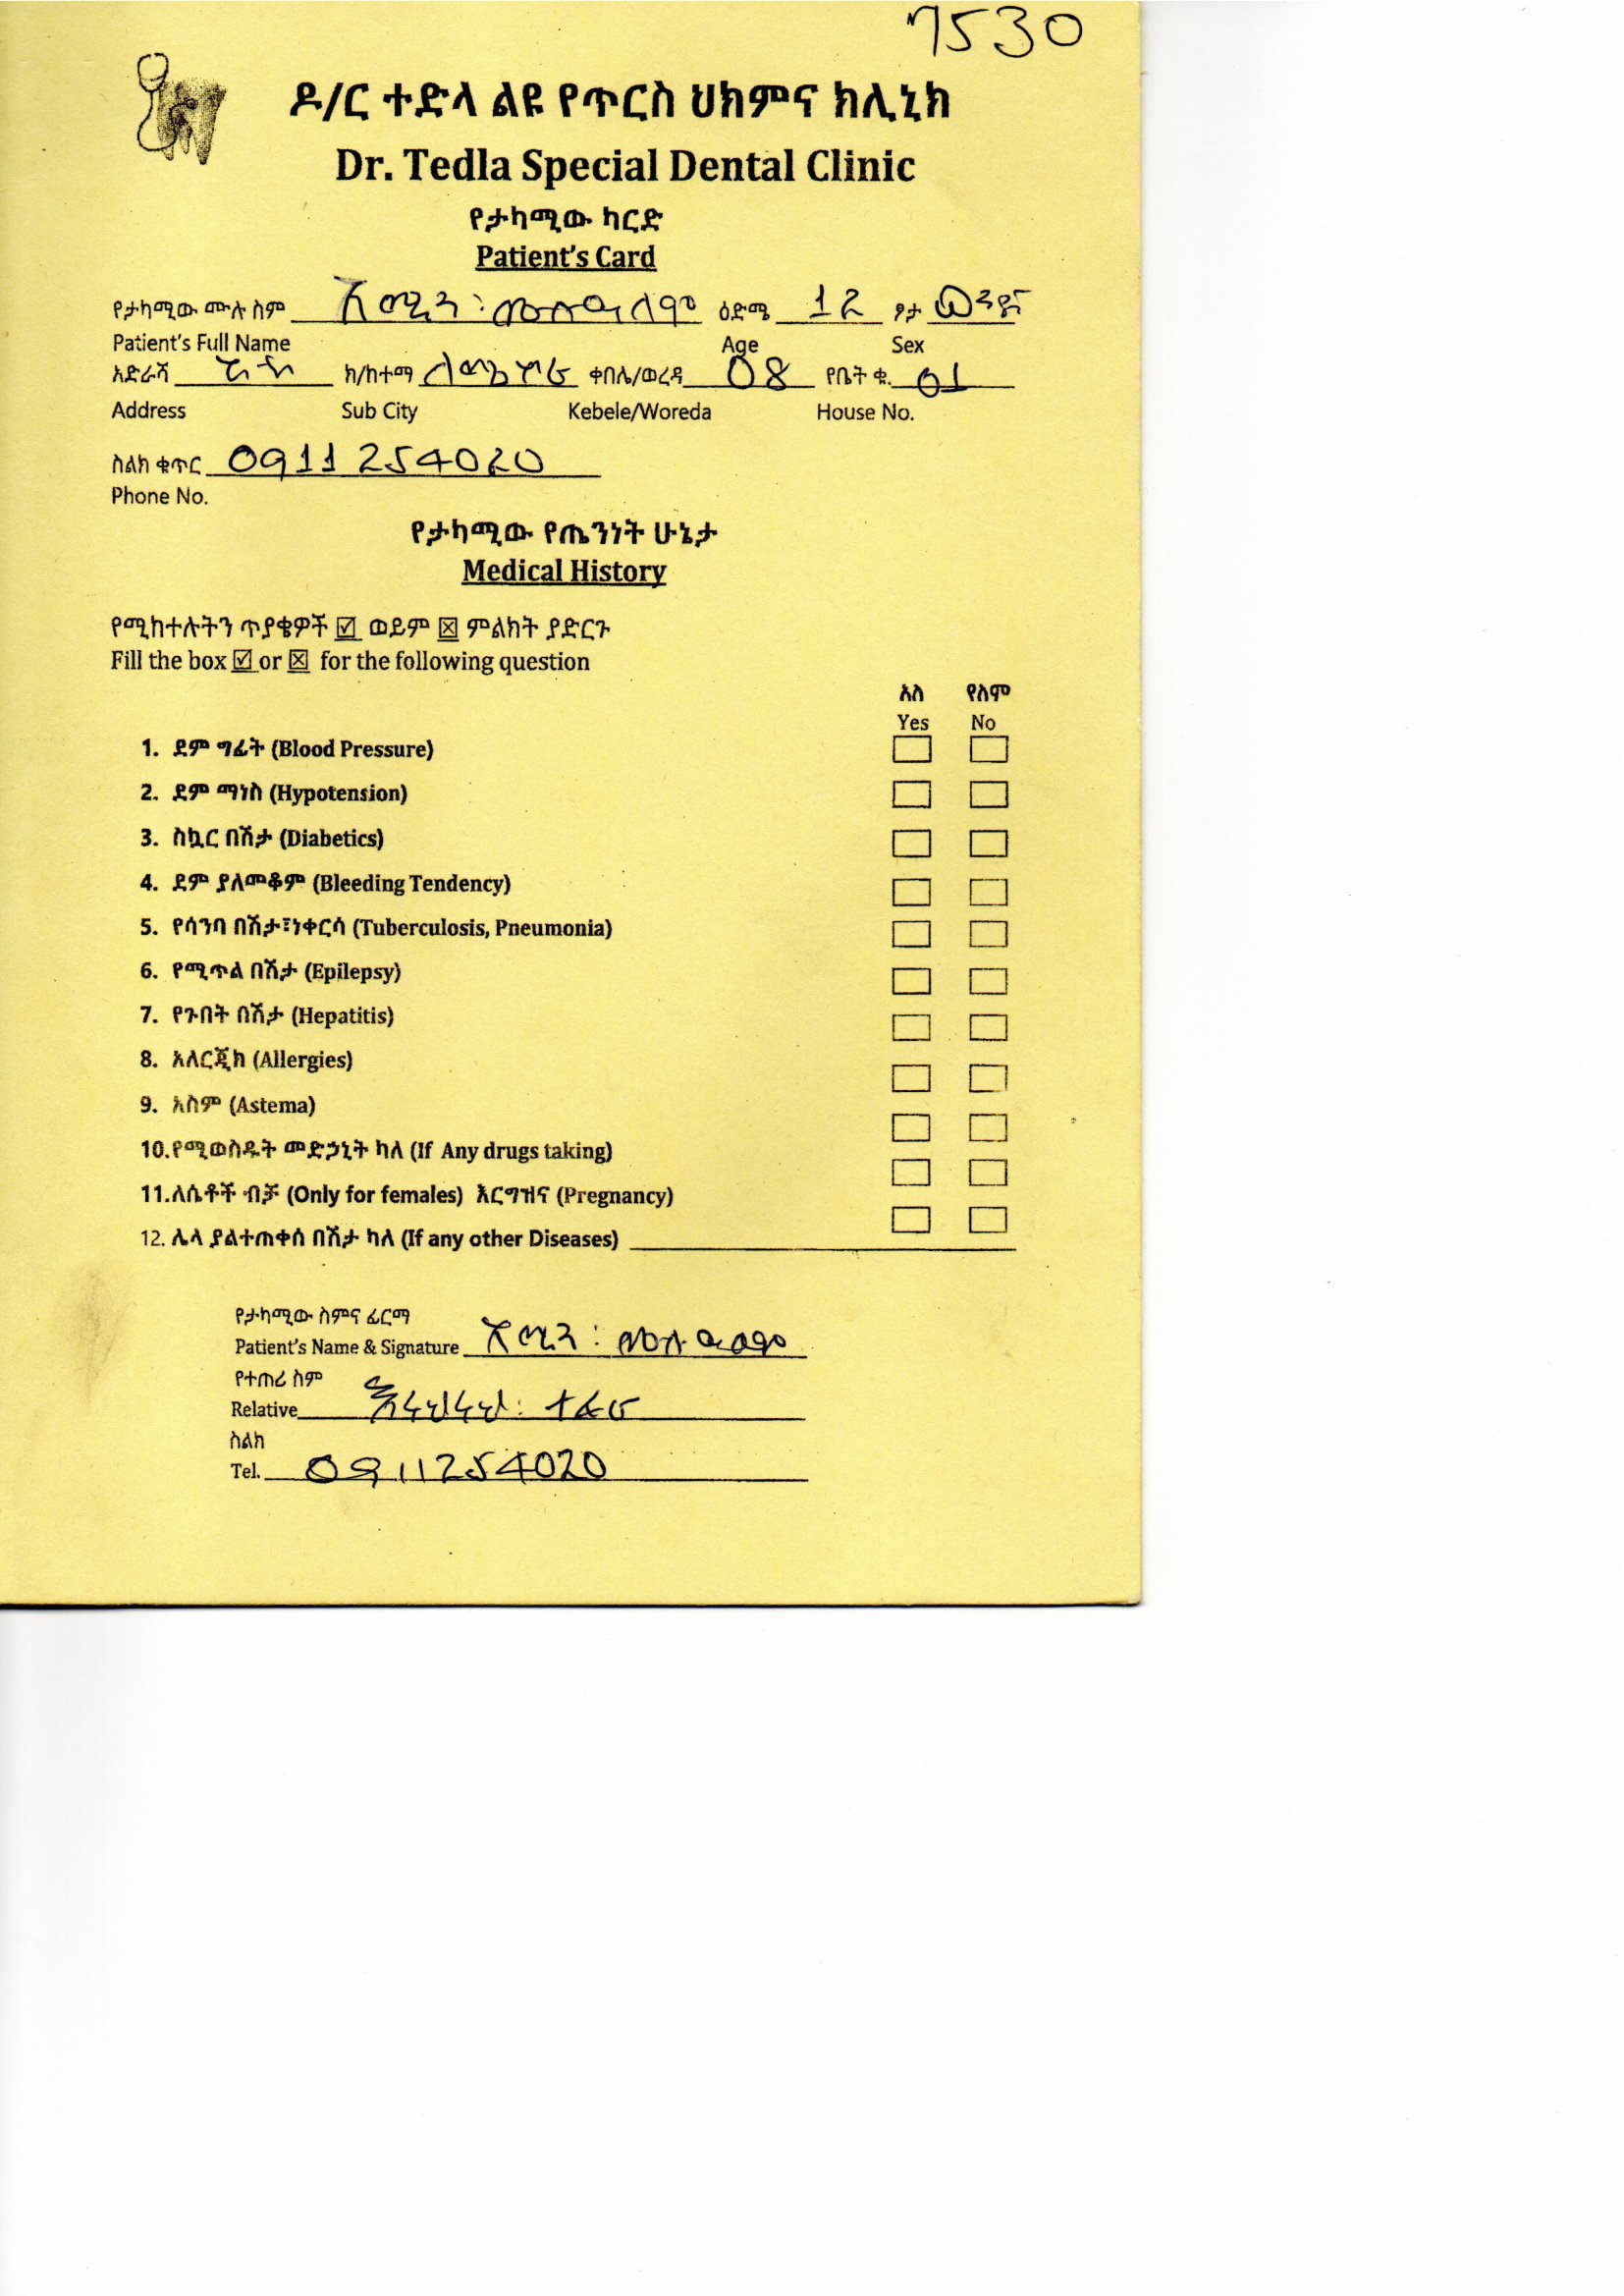 7530
ዶ/ር ተድላ ልዩ የጥርስ ህክምና ክሊኒክ
Dr. Tedla Special Dental Clinic
የታካሚው ካርድ
Patient's Card
የታካሚው ሙሉ ስም ዕድሜ 12 ፆታ
Patient's Full Name Age Sex
አድራሻ ክ/ከተማ ቀበሌ/ወረዳ 08 የቤት ቁ. 01
Address Sub City Kebele/Woreda House No.
ስልክ ቁጥር 0911254020
Phone No.
የታካሚው የጤንነት ሁኔታ
Medical History
የሚከተሉትን ጥያቄዎች ☑ ወይም ☒ ምልክት ያድርጉ
Fill the box ☑ or ☒ for the following question
አለ የለም
Yes No
1. ደም ግፊት (Blood Pressure)
2. ደም ማነስ (Hypotension)
3. ስኳር በሽታ (Diabetics)
4. ደም ያለመቆም (Bleeding Tendency)
5. የሳንባ በሽታ፣ነቀርሳ (Tuberculosis, Pneumonia)
6. የሚጥል በሽታ (Epilepsy)
7. የጉበት በሽታ (Hepatitis)
8. አለርጂክ (Allergies)
9. አስም (Astema)
10.የሚወስዱት መድኃኒት ካለ (If Any drugs taking)
11.ለሴቶች ብቻ (Only for females) እርግዝና (Pregnancy)
12. ሌላ ያልተጠቀሰ በሽታ ካለ (If any other Diseases)
የታካሚው ስምና ፊርማ
Patient's Name & Signature
የተጠሪ ስም
Relative ተፈራ
ስልክ
Tel. 0911254020